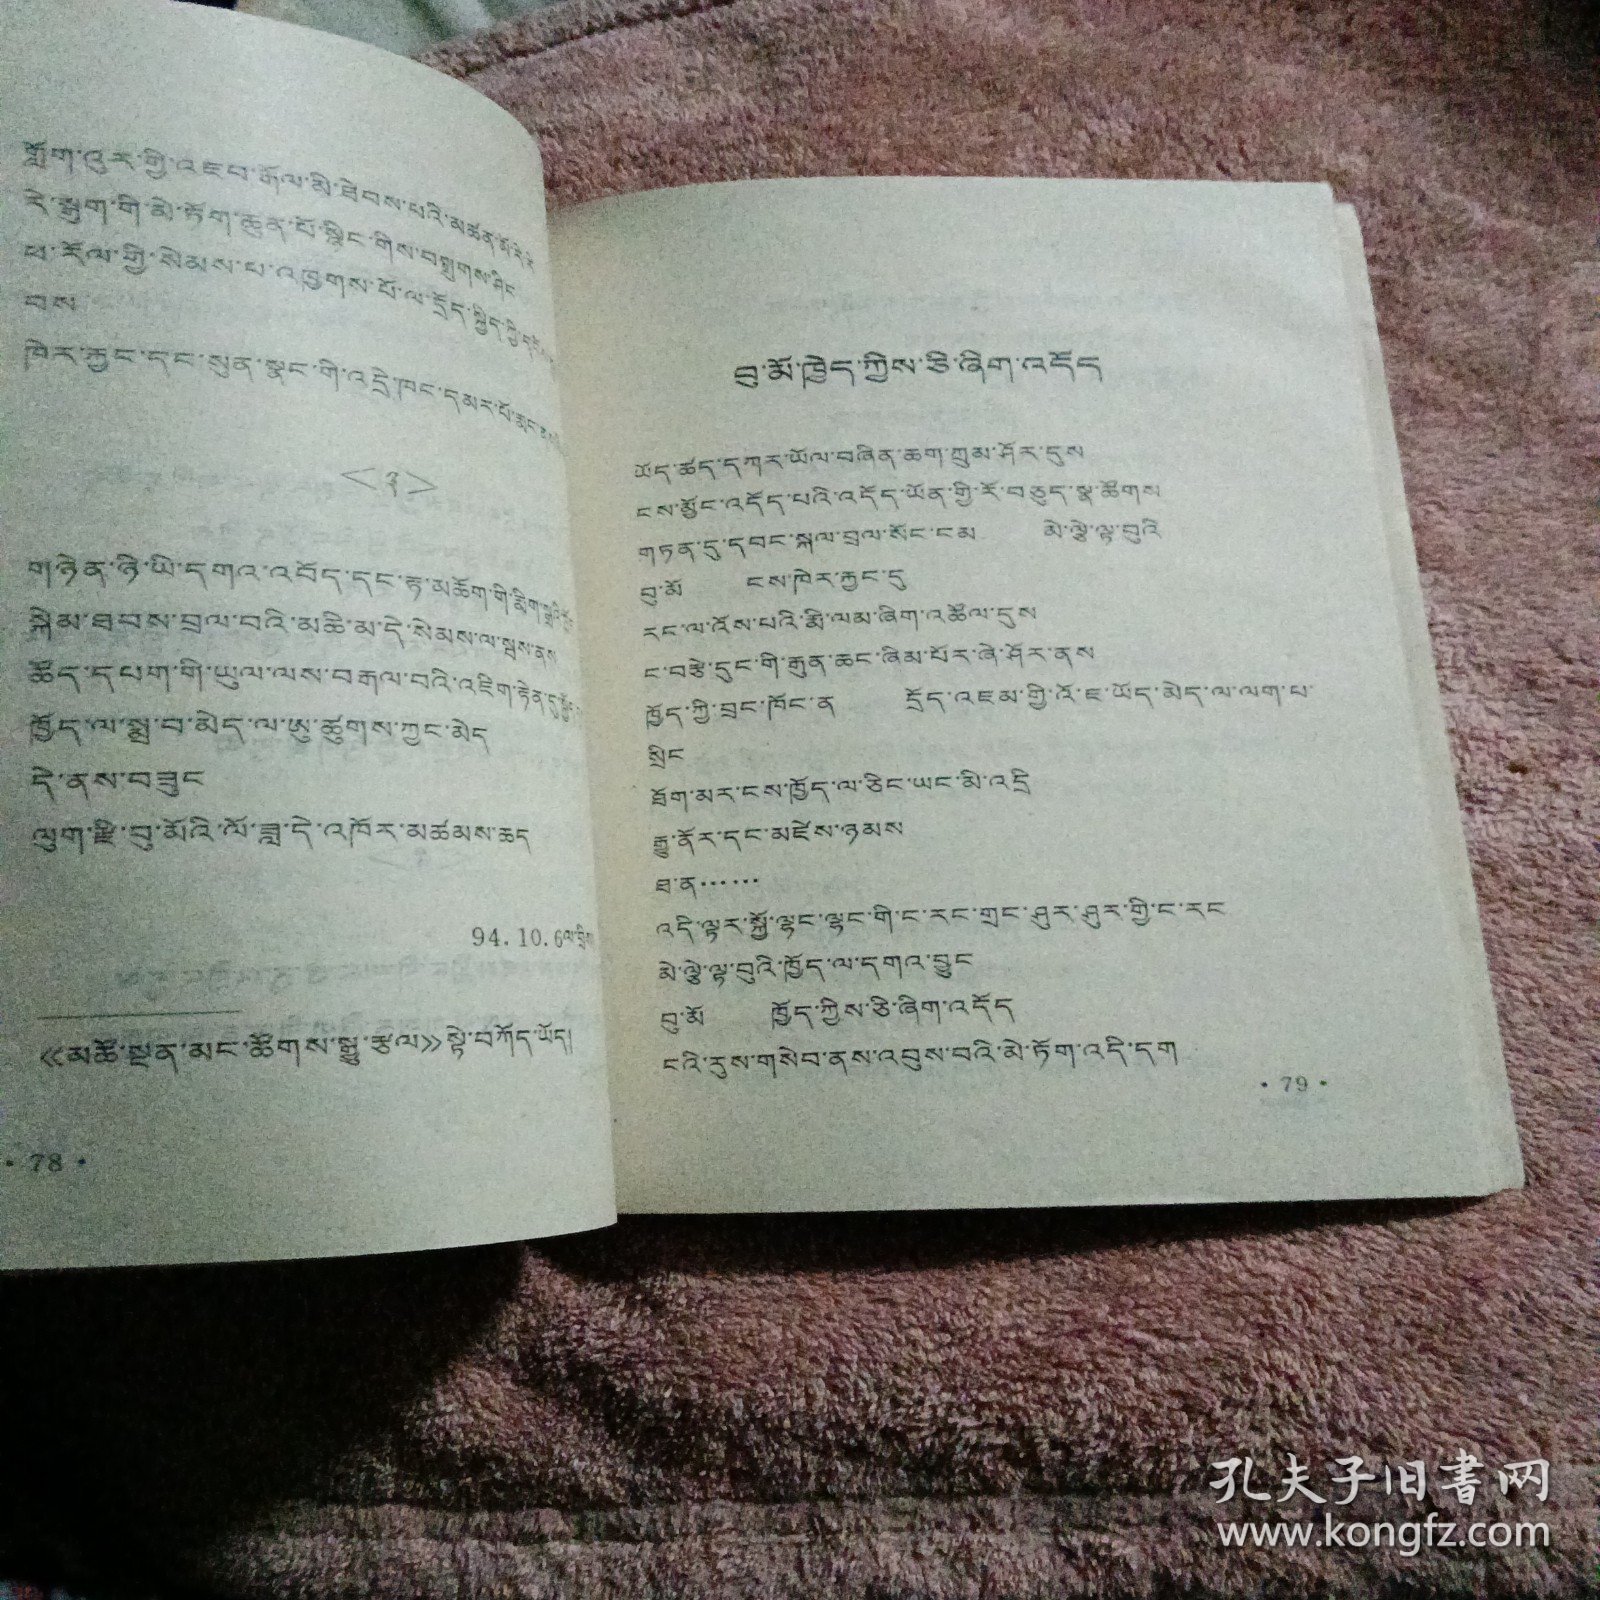 གློག་འུར་གྱི་འཇབ་རྒོལ་མི་ཐེབས་པའི་མཚན་མོ་རེ་རེ
རེ་སྨུག་གི་མེ་ཏོག་རྒུན་པོ་སྙིང་གིས་བསྒྲགས་ཤིང
ཕ་རོལ་གྱི་སེམས་པ་འཁྱགས་པོ་ལ་དྲོད་སྐྱིད་ཀྱི
བས
ཁེར་རྐྱང་དང་སུན་སྣང་གི་འདྲེ་ཁང་དམར་པོ
<༣>
གཉེན་ཉེ་ཡི་དགའ་འབོད་དང་རྟ་མཆོག་གི་རྨིག
སྐེམ་ཐབས་བྲལ་བའི་མཆི་མ་དེ་སེམས་ལ་སྦས་ནས
ཚོད་དཔག་གི་ཡུལ་ལས་བརྒལ་བའི་འཇིག་རྟེན་དུ
ཁྱོད་ལ་སྨྲ་བ་མེད་ལ་ཨུ་ཚུགས་ཀྱང་མེད
དེ་ནས་བཟུང
ལུག་རྫི་བུ་མོའི་ལོ་ཟླ་དེ་འཁོར་མཚམས་ཆད
94.10.6ལ་བྲིས
《མཚོ་སྔོན་མང་ཚོགས་སྒྱུ་རྩལ》སྟེ་བཀོད་ཡོད།
· 78 ·
བུ་མོ་ཁྱེད་ཀྱིས་ཅི་ཞིག་འདོད
ཡོད་ཚད་དཀར་ཡོལ་བཞིན་ཆག་གྲུམ་ཤོར་དུས
ངས་མྱོང་འདོད་པའི་འདོད་ཡོན་གྱི་རོ་བཅུད་སྣ་ཚོགས
གཏན་དུ་དབང་སྐལ་བྲལ་སོང་ངམ མེ་ལྕེ་ལྟ་བུའི
བུ་མོ ངས་ཁེར་རྐྱང་དུ
རང་ལ་འོས་པའི་རྨི་ལམ་ཞིག་འཚོལ་དུས
ང་བརྩེ་དུང་གི་རྒུན་ཆང་ཞིམ་པོར་ཞེ་ཤོར་ནས
ཁྱོད་ཀྱི་བྲང་ཁོང་ན དྲོད་འཇམ་གྱི་འོ་ཇ་ཡོད་མེད་ལ་ལག་པ་
སྲིང
ཐོག་མར་ངས་ཁྱོད་ལ་ཅིང་ཡང་མི་འདྲི
རྒྱུ་ནོར་དང་མཛེས་ཉམས
ཐ་ན……
འདི་ལྟར་སྐྱོ་ལྷང་ལྷང་གི་ང་རང་གྲང་ཤུར་ཤུར་གྱི་ང་རང
མེ་ལྕེ་ལྟ་བུའི་ཁྱོད་ལ་དགའ་བྱུང
བུ་མོ ཁྱོད་ཀྱིས་ཅི་ཞིག་འདོད
ངའི་རུས་གསེབ་ནས་འབུས་བའི་མེ་ཏོག་འདི་དག
· 79 ·
孔夫子旧书网
www.kongfz.com